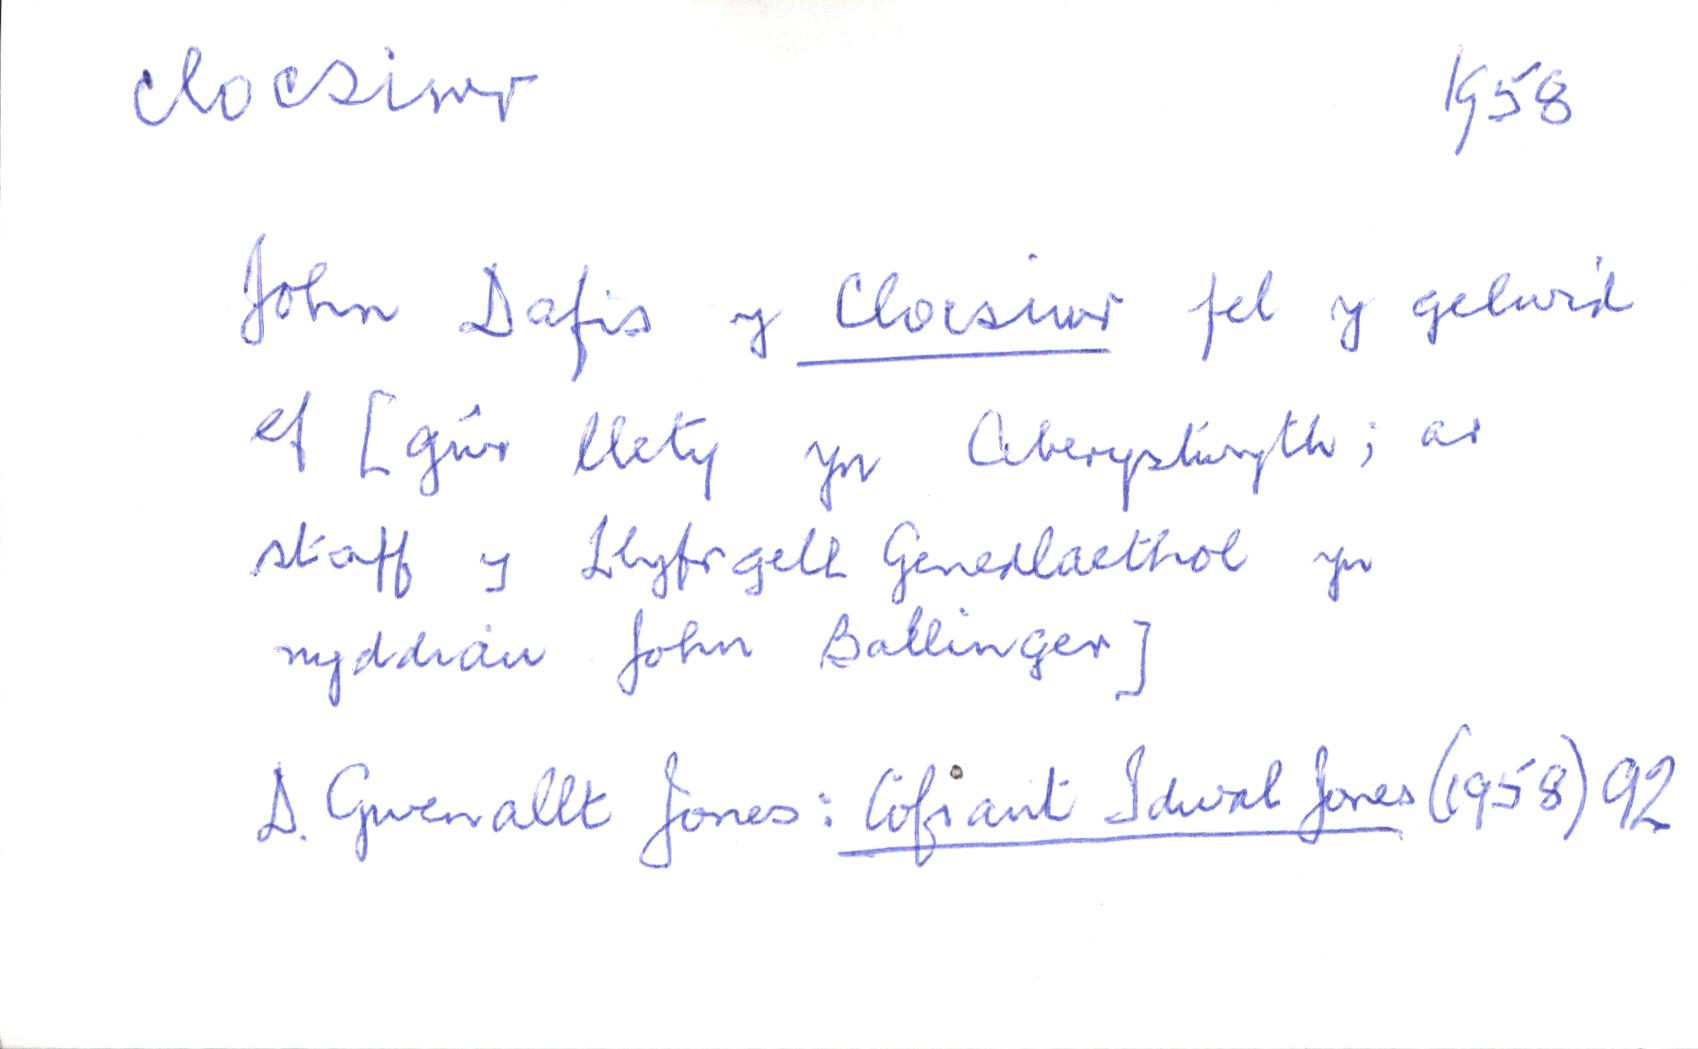 clocsiwr 1958
John Dafis y Clocsiwr fel y gelwid
ef [gŵr llety yn Aberystwyth; ar
staff y Llyfrgell Genedlaethol yn
nyddiau John Ballinger]
D. Gwenallt Jones: Cofiant Idwal Jones (1958) 92